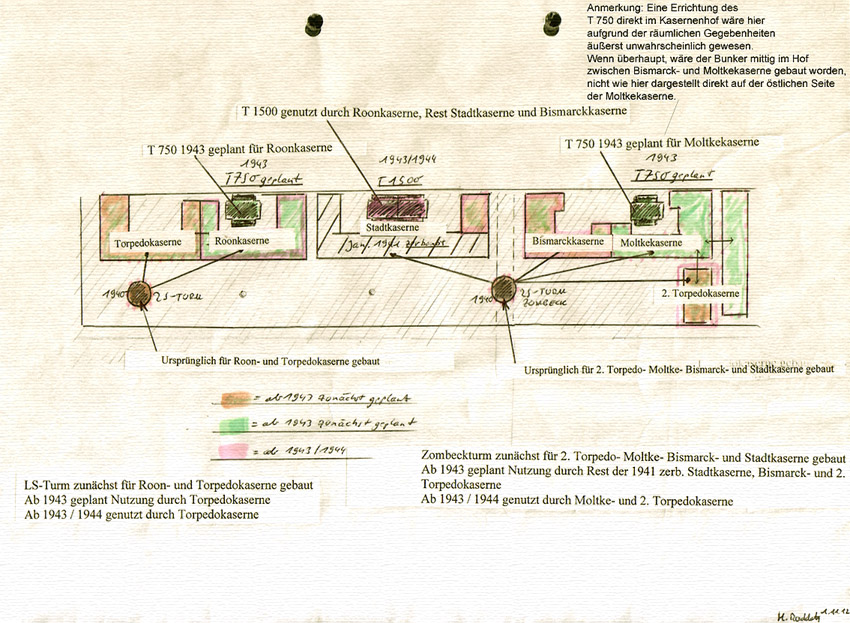 Anmerkung: Eine Errichtung des
T 750 direkt im Kasernenhof wäre hier
aufgrund der räumlichen Gegebenheiten
äußerst unwahrscheinlich gewesen.
Wenn überhaupt, wäre der Bunker mittig im Hof
zwischen Bismarck- und Moltkekaserne gebaut worden,
nicht wie hier dargestellt direkt auf der östlichen Seite
der Moltkekaserne.
T 1500 genutzt durch Roonkaserne, Rest Stadtkaserne und Bismarckkaserne
T 750 1943 geplant für Roonkaserne
T 750 1943 geplant für Moltkekaserne
1943
T750 geplant
1943/1944
T 1500
1943
T750 geplant
Torpedokaserne
Roonkaserne
Stadtkaserne
Jan. 1941 zerbombt
Bismarckkaserne
Moltkekaserne
2. Torpedokaserne
1940
LS-TURM
1940
LS-TURM
ZOMBECK
Ursprünglich für Roon- und Torpedokaserne gebaut
Ursprünglich für 2. Torpedo- Moltke- Bismarck- und Stadtkaserne gebaut
= ab 1943 zunächst geplant
= ab 1943 zunächst geplant
= ab 1943/1944
LS-Turm zunächst für Roon- und Torpedokaserne gebaut
Ab 1943 geplant Nutzung durch Torpedokaserne
Ab 1943 / 1944 genutzt durch Torpedokaserne
Zombeckturm zunächst für 2. Torpedo- Moltke- Bismarck- und Stadtkaserne gebaut
Ab 1943 geplant Nutzung durch Rest der 1941 zerb. Stadtkaserne, Bismarck- und 2.
Torpedokaserne
Ab 1943 / 1944 genutzt durch Moltke- und 2. Torpedokaserne